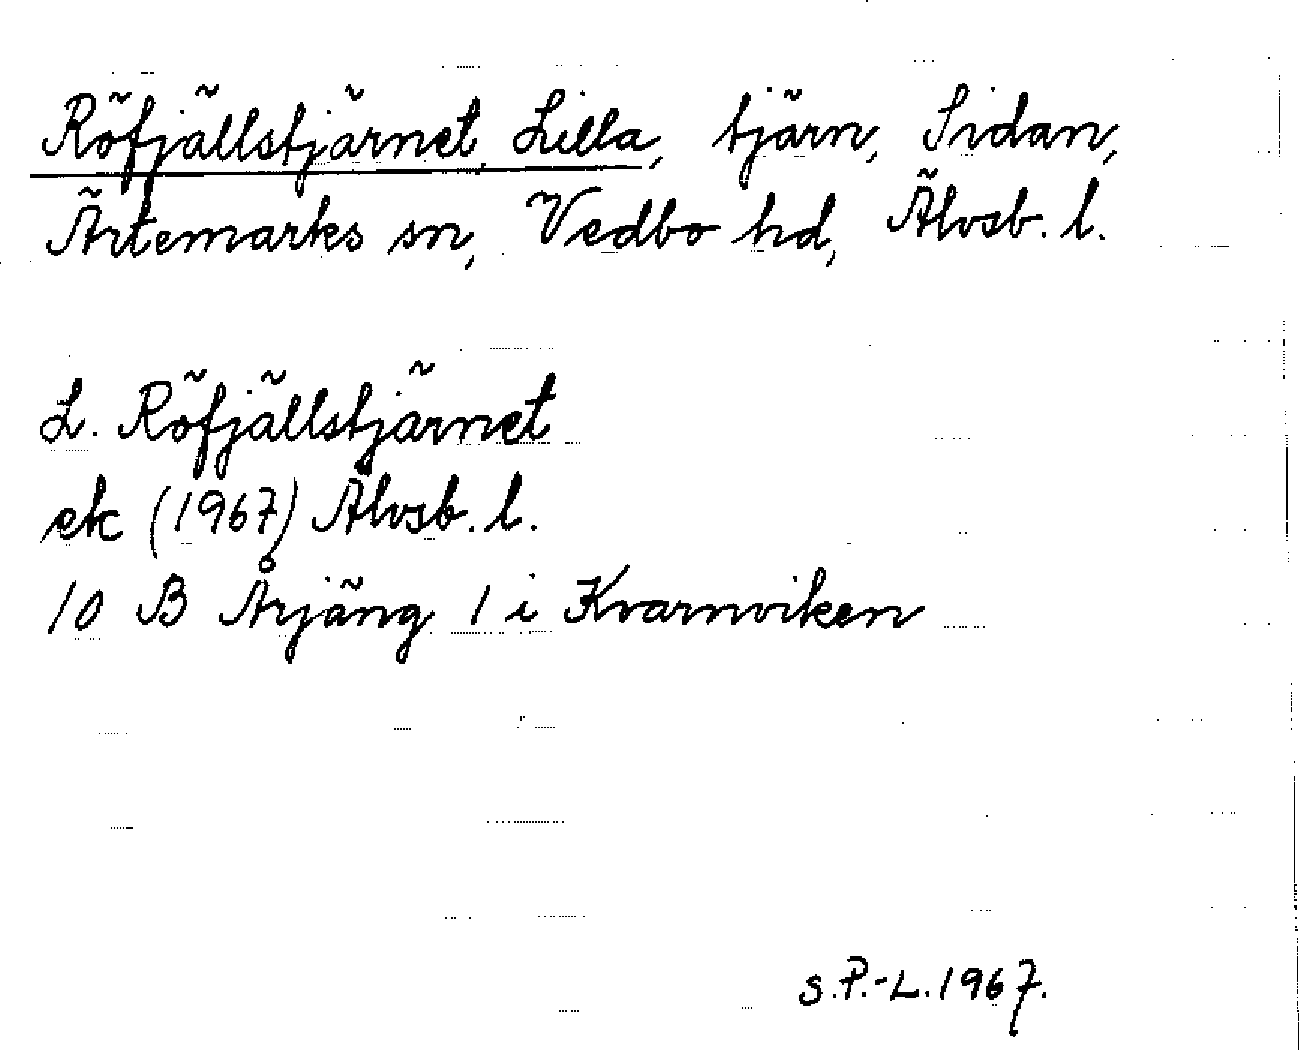 Röfjällstjärnet, Lilla, tjärn, Sidan,
Ärtemarks sn, Vedbo hd, Älvsb. l.
L. Röfjällstjärnet
ek (1967) Älvsb. l.
10 B Årjäng 1 i Kvarnviken
S.P.-L. 1967.